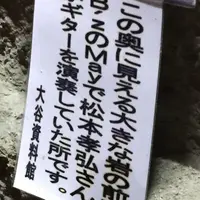 この奥に見える大きな岩の前
B'zのMayで松本孝弘さん
ギターを演奏していた所です。
大谷資料館